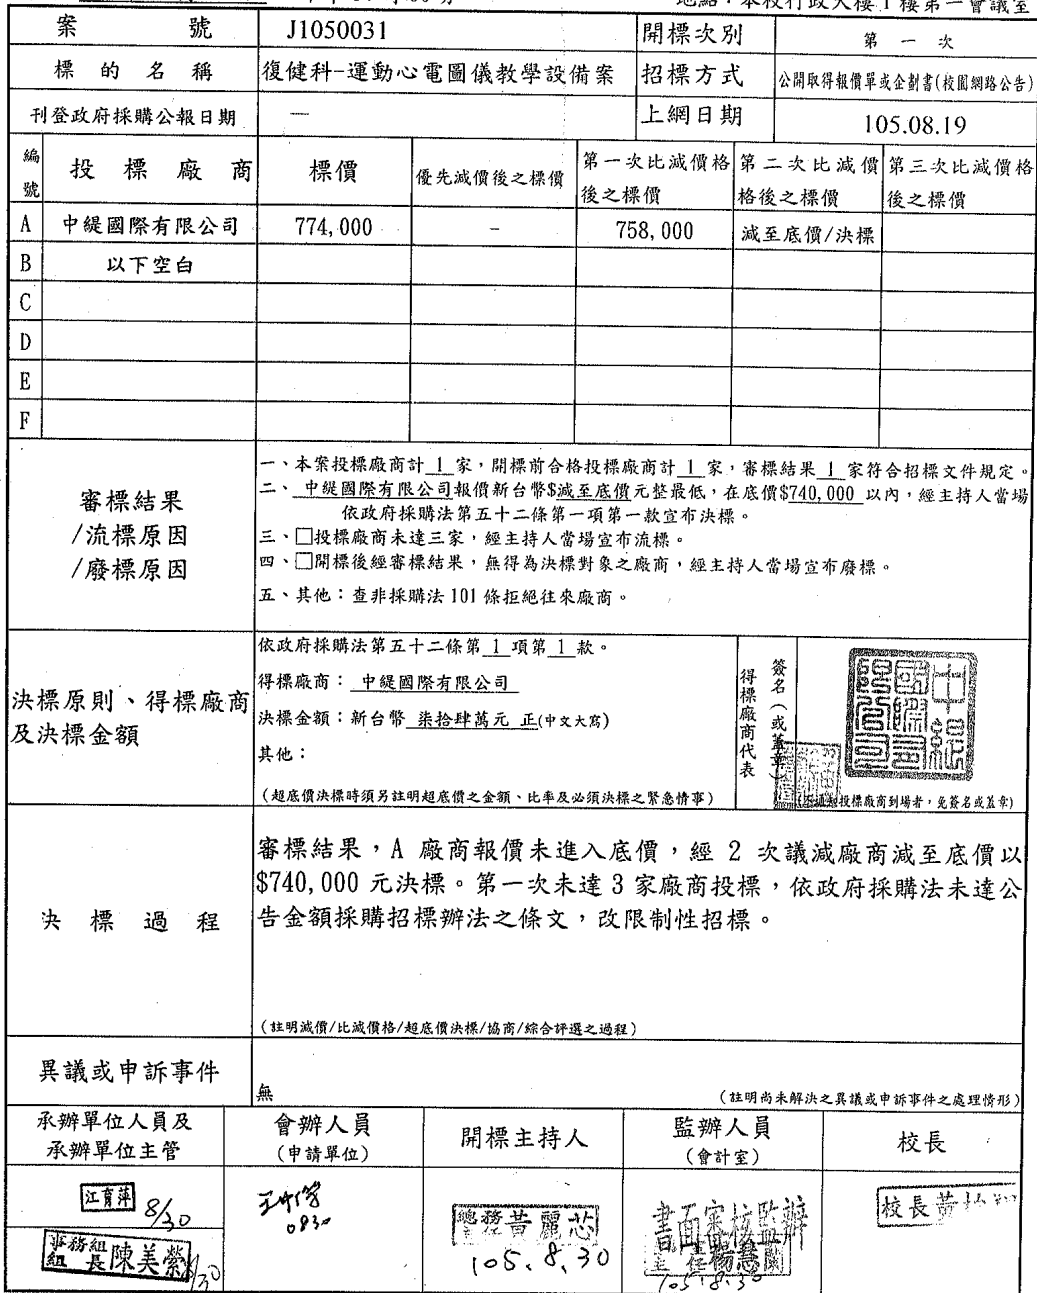 地點：本校行政大樓1樓第一會議室
案 號 J1050031 開標次別 第 一 次
標 的 名 稱 復健科-運動心電圖儀教學設備案 招標方式 公開取得報價單或企劃書(校園網路公告)
刊登政府採購公報日期 — 上網日期 105.08.19
編號 投 標 廠 商 標價 優先減價後之標價 第一次比減價格後之標價 第二次比減價格後之標價 第三次比減價格後之標價
A 中緹國際有限公司 774,000 - 758,000 減至底價/決標
B 以下空白
C
D
E
F
審標結果
/流標原因
/廢標原因
一、本案投標廠商計 1 家，開標前合格投標廠商計 1 家，審標結果 1 家符合招標文件規定。
二、中緹國際有限公司報價新台幣$減至底價元整最低，在底價$740,000 以內，經主持人當場
依政府採購法第五十二條第一項第一款宣布決標。
三、□投標廠商未達三家，經主持人當場宣布流標。
四、□開標後經審標結果，無得為決標對象之廠商，經主持人當場宣布廢標。
五、其他：查非採購法 101 條拒絕往來廠商。
決標原則、得標廠商
及決標金額
依政府採購法第五十二條第 1 項第 1 款。
得標廠商： 中緹國際有限公司
決標金額：新台幣 柒拾肆萬元 正(中文大寫)
其他：
(超底價決標時須另註明超底價之金額、比率及必須決標之緊急情事)
得標廠商代表
簽名(或蓋章)
中緹國際有限公司
投標廠商到場者，免簽名或蓋章)
決 標 過 程
審標結果，A 廠商報價未進入底價，經 2 次議減廠商減至底價以
$740,000 元決標。第一次未達 3 家廠商投標，依政府採購法未達公
告金額採購招標辦法之條文，改限制性招標。
(註明減價/比減價格/超底價決標/協商/綜合評選之過程)
異議或申訴事件
無
(註明尚未解決之異議或申訴事件之處理情形)
承辦單位人員及
承辦單位主管
會辦人員
(申請單位)
開標主持人
監辦人員
(會計室)
校長
江育萍 8/30
事務組組長 陳美縈 8/30
0830
總務主任 黃麗芯
105.8.30
書面審核監辦
主任 楊慧蘭
105.8.30
校長黃柏翔